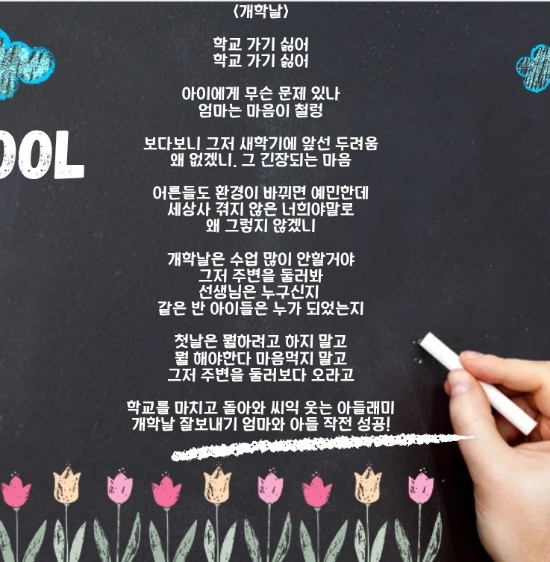 <개학날>
학교 가기 싫어
학교 가기 싫어
아이에게 무슨 문제 있나
엄마는 마음이 철렁
보다보니 그저 새학기에 앞선 두려움
왜 없겠니. 그 긴장되는 마음
어른들도 환경이 바뀌면 예민한데
세상사 겪지 않은 너희야말로
왜 그렇지 않겠니
개학날은 수업 많이 안할거야
그저 주변을 둘러봐
선생님은 누구신지
같은 반 아이들은 누가 되었는지
첫날은 뭘하려고 하지 말고
뭘 해야한다 마음먹지 말고
그저 주변을 둘러보다 오라고
학교를 마치고 돌아와 씨익 웃는 아들래미
개학날 잘보내기 엄마와 아들 작전 성공!
OOL